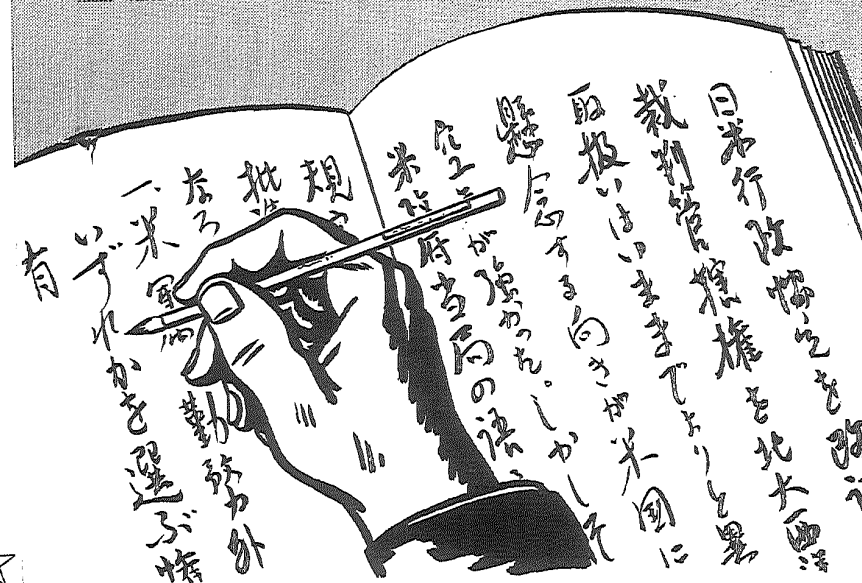 日米行政協定を改訂
裁判管轄権を北大西洋
取扱いはいままでよりも異
懸念する向きが米国に
が強かった。しかしそ
米政府当局の語
規
批
なろ
一、米軍 勤務外
いずれかを選ぶ権
有